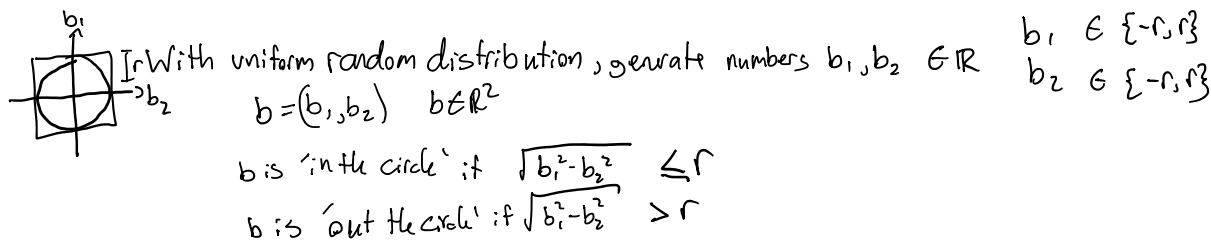 b₁
r With uniform random distribution, genrate numbers b₁, b₂ ∈ ℝ
b₁ ∈ {-r, r}
b₂
b = (b₁, b₂) b ∈ ℝ²
b₂ ∈ {-r, r}
b is 'in the circle' if √(b₁² - b₂²) ≤ r
b is 'out the circle' if √(b₁² - b₂²) > r